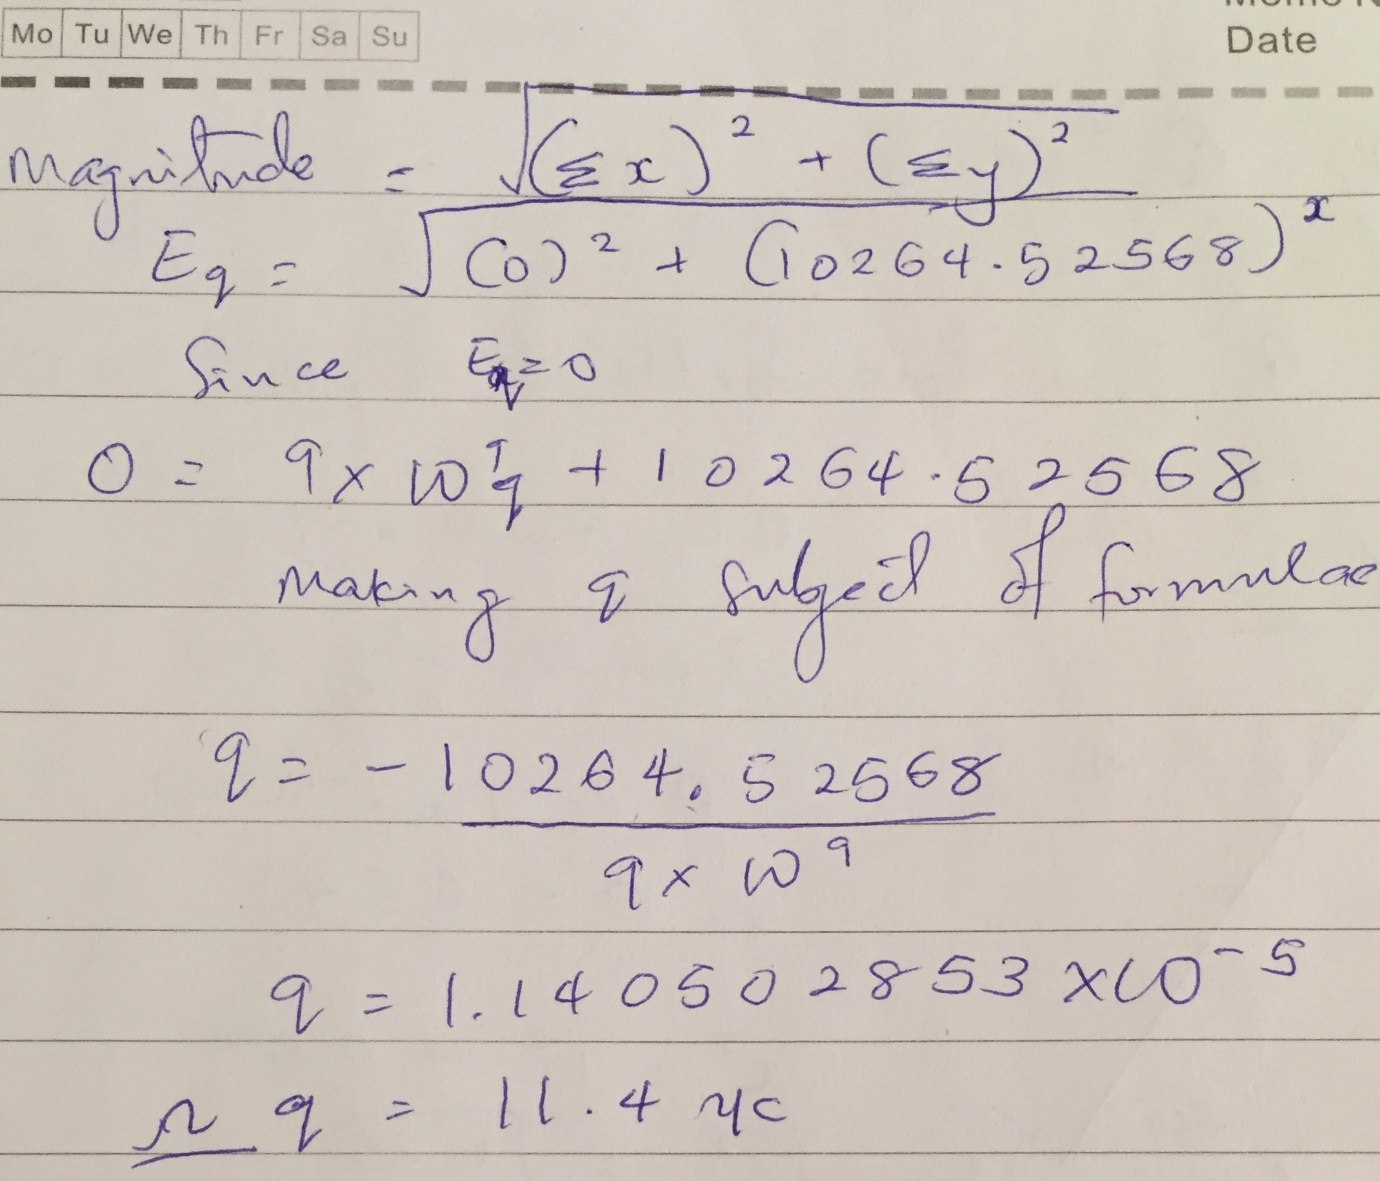 Mo Tu We Th Fr Sa Su
Date
Magnitude = √(Σx)² + (Σy)²
Eq = √(0)² + (10264.52568)²
Since Eq = 0
0 = 9 x 10⁹q + 10264.52568
Making q subject of formulae
q = -10264.52568
9 x 10⁹
q = 1.140502853 x 10⁻⁵
q = 11.4 μc